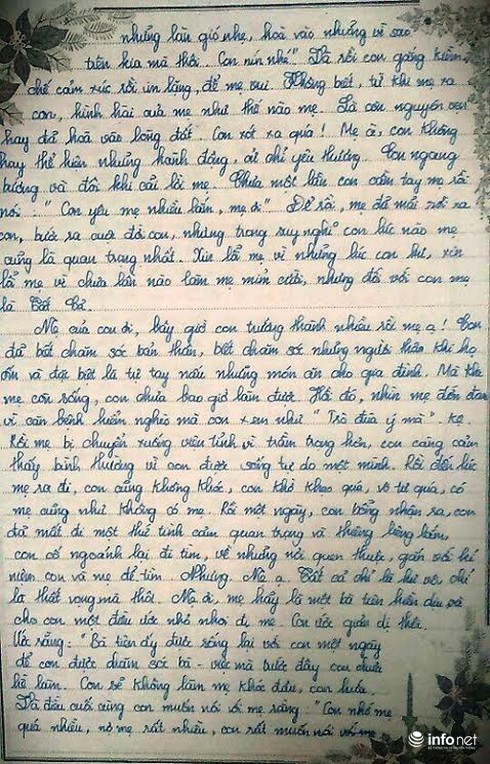 những làn gió nhẹ, hoà vào những vì sao
trên kia mà thôi. Con nín nhé". Và rồi con gắng kiềm
chế cảm xúc rồi im lặng, để mẹ vui. Không biết, từ khi mẹ xa
con, hình hài của mẹ như thế nào mẹ. Là còn nguyên vẹn
hay đã hoà vào lòng đất. Con xót xa quá! Mẹ à, con không
hay thể hiện những hành động, cử chỉ yêu thương. Con ngang
bướng và đôi khi cãi lời mẹ. Chưa một lần con cầm tay mẹ rồi
nói: "Con yêu mẹ nhiều lắm, mẹ ơi". Để rồi, mẹ đã mãi rời xa
con, bước ra cuộc đời con, nhưng trong suy nghĩ con lúc nào mẹ
cũng là quan trọng nhất. Xin lỗi mẹ vì những lúc con hư, xin
lỗi mẹ vì chưa lần nào làm mẹ mỉm cười, nhưng đối với con mẹ
là Tất Cả.
Mẹ của con ơi, bây giờ con trưởng thành nhiều rồi mẹ ạ! Con
đã biết chăm sóc bản thân, biết chăm sóc những người thân khi họ
ốm và đặc biệt là tự tay nấu những món ăn cho gia đình. Mà khi
mẹ còn sống, con chưa bao giờ làm được. Hồi đó, nhìn mẹ đớn đau
vì căn bệnh hiểm nghèo mà con xem như "Trò đùa ý mà".
Rồi mẹ bị chuyển xuống viện tỉnh vì trầm trọng hơn, con càng cảm
thấy bình thường vì con được sống tự do một mình. Rồi đến lúc
mẹ ra đi, con cũng không khóc, con khờ khạo quá, vô tư quá, có
mẹ cũng như không có mẹ. Rồi một ngày, con bỗng nhận ra, con
đã mất đi một thứ tình cảm quan trọng và thiêng liêng lắm,
con cố ngoảnh lại đi tìm, về những nơi quen thuộc, gắn với kỉ
niệm con và mẹ để tìm. Nhưng. Mẹ ạ. Tất cả chỉ là hư vô, chỉ
là thất vọng mà thôi. Mẹ ơi, mẹ hãy là một bà tiên hiền dịu và
cho con một điều ước nhỏ nhoi đi mẹ. Con ước giản dị thôi.
Ước rằng: "Bà tiên ấy được sống lại với con một ngày
để con được chăm sóc bà - việc mà trước đây con chưa
hề làm. Con sẽ không làm mẹ khóc đâu, con hứa.
Và điều cuối cùng con muốn nói với mẹ rằng: "Con nhớ mẹ
quá nhiều, nợ mẹ rất nhiều, con rất muốn nói với mẹ
infonet